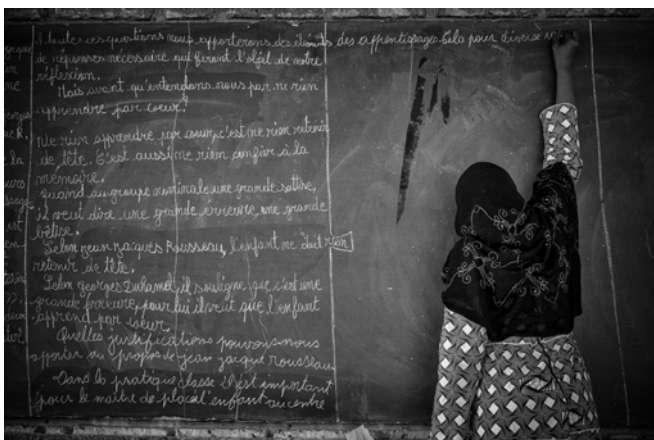 A toutes ces questions nous apporterons des éléments
de réponses nécessaire qui feront l'objet de notre
réflexion.
Mais avant qu'entendons nous par ne rien
apprendre par coeur?
Ne rien apprendre par coeur, c'est ne rien retenir
de tête. C'est aussi ne rien confier à la
mémoire.
Quand au groupe nominale une grande sottise,
il veut dire une grande erreure, une grande
bêtise.
Selon jean jacques Rousseau, l'enfant ne doit rien
retenir de tête.
Selon georges Duhamel, il souligne que c'est une
grande erreure, pour lui il veut que l'enfant
apprend par coeur.
Quelles justifications pouvons-nous
apporter au propos de jean jacque rousseau
Dans la pratique classe il est important
pour le maître de placé l'enfant au centre
des apprentissages. Cela pour diverse